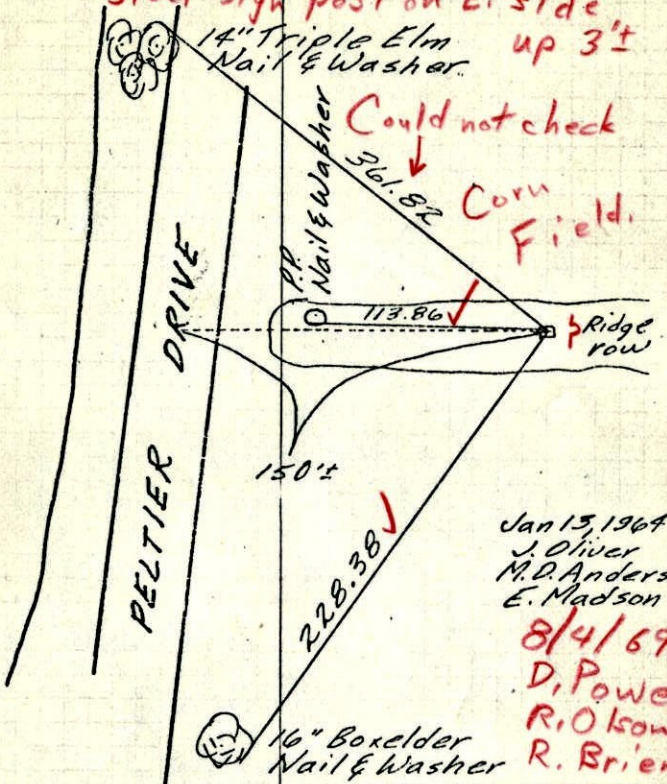 Steel sign post on E. side
up 3'±
14" Triple Elm
Nail & Washer
Could not check
361.82
Corn
Field.
P.P.
Nail & Washer
113.86
Ridge
row
DRIVE
PELTIER
150'±
228.38
Jan 13, 1964
J. Oliver
M.D. Anders
E. Madson
8/4/69
D. Powe
R. Olson
R. Brie
16" Boxelder
Nail & Washer